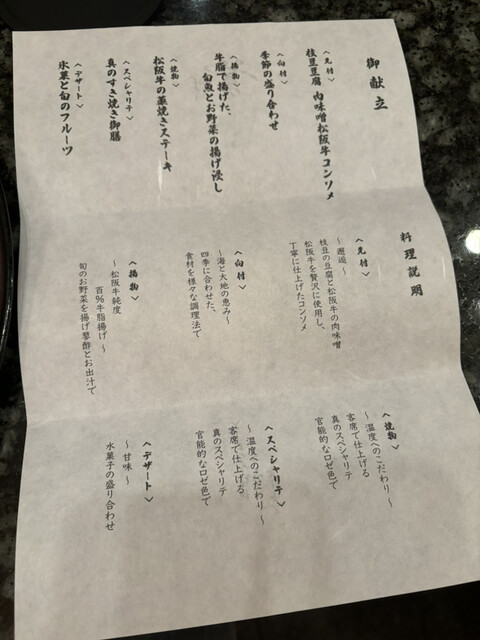 御献立
〈先付〉
枝豆豆腐 肉味噌松阪牛コンソメ
〈向付〉
季節の盛り合わせ
〈揚物〉
牛脂で揚げた、
旬魚とお野菜の揚げ浸し
〈焼物〉
松阪牛の藁焼きステーキ
〈スペシャリテ〉
真のすき焼き御膳
〈デザート〉
氷菓と旬のフルーツ
料理説明
〈先付〉
〜邂逅〜
枝豆の豆腐と松阪牛の肉味噌
松阪牛を贅沢に使用し、
丁寧に仕上げたコンソメ
〈向付〉
〜海と大地の恵み〜
四季に合わせた、
食材を様々な調理法で
〈揚物〉
〜松阪牛純度
百%牛脂揚げ〜
旬のお野菜を揚げ蓼酢とお出汁で
〈焼物〉
〜温度へのこだわり〜
客席で仕上げる
真のスペシャリテ
官能的なロゼ色で
〈スペシャリテ〉
〜温度へのこだわり〜
客席で仕上げる
真のスペシャリテ
官能的なロゼ色で
〈デザート〉
〜甘味〜
水菓子の盛り合わせ